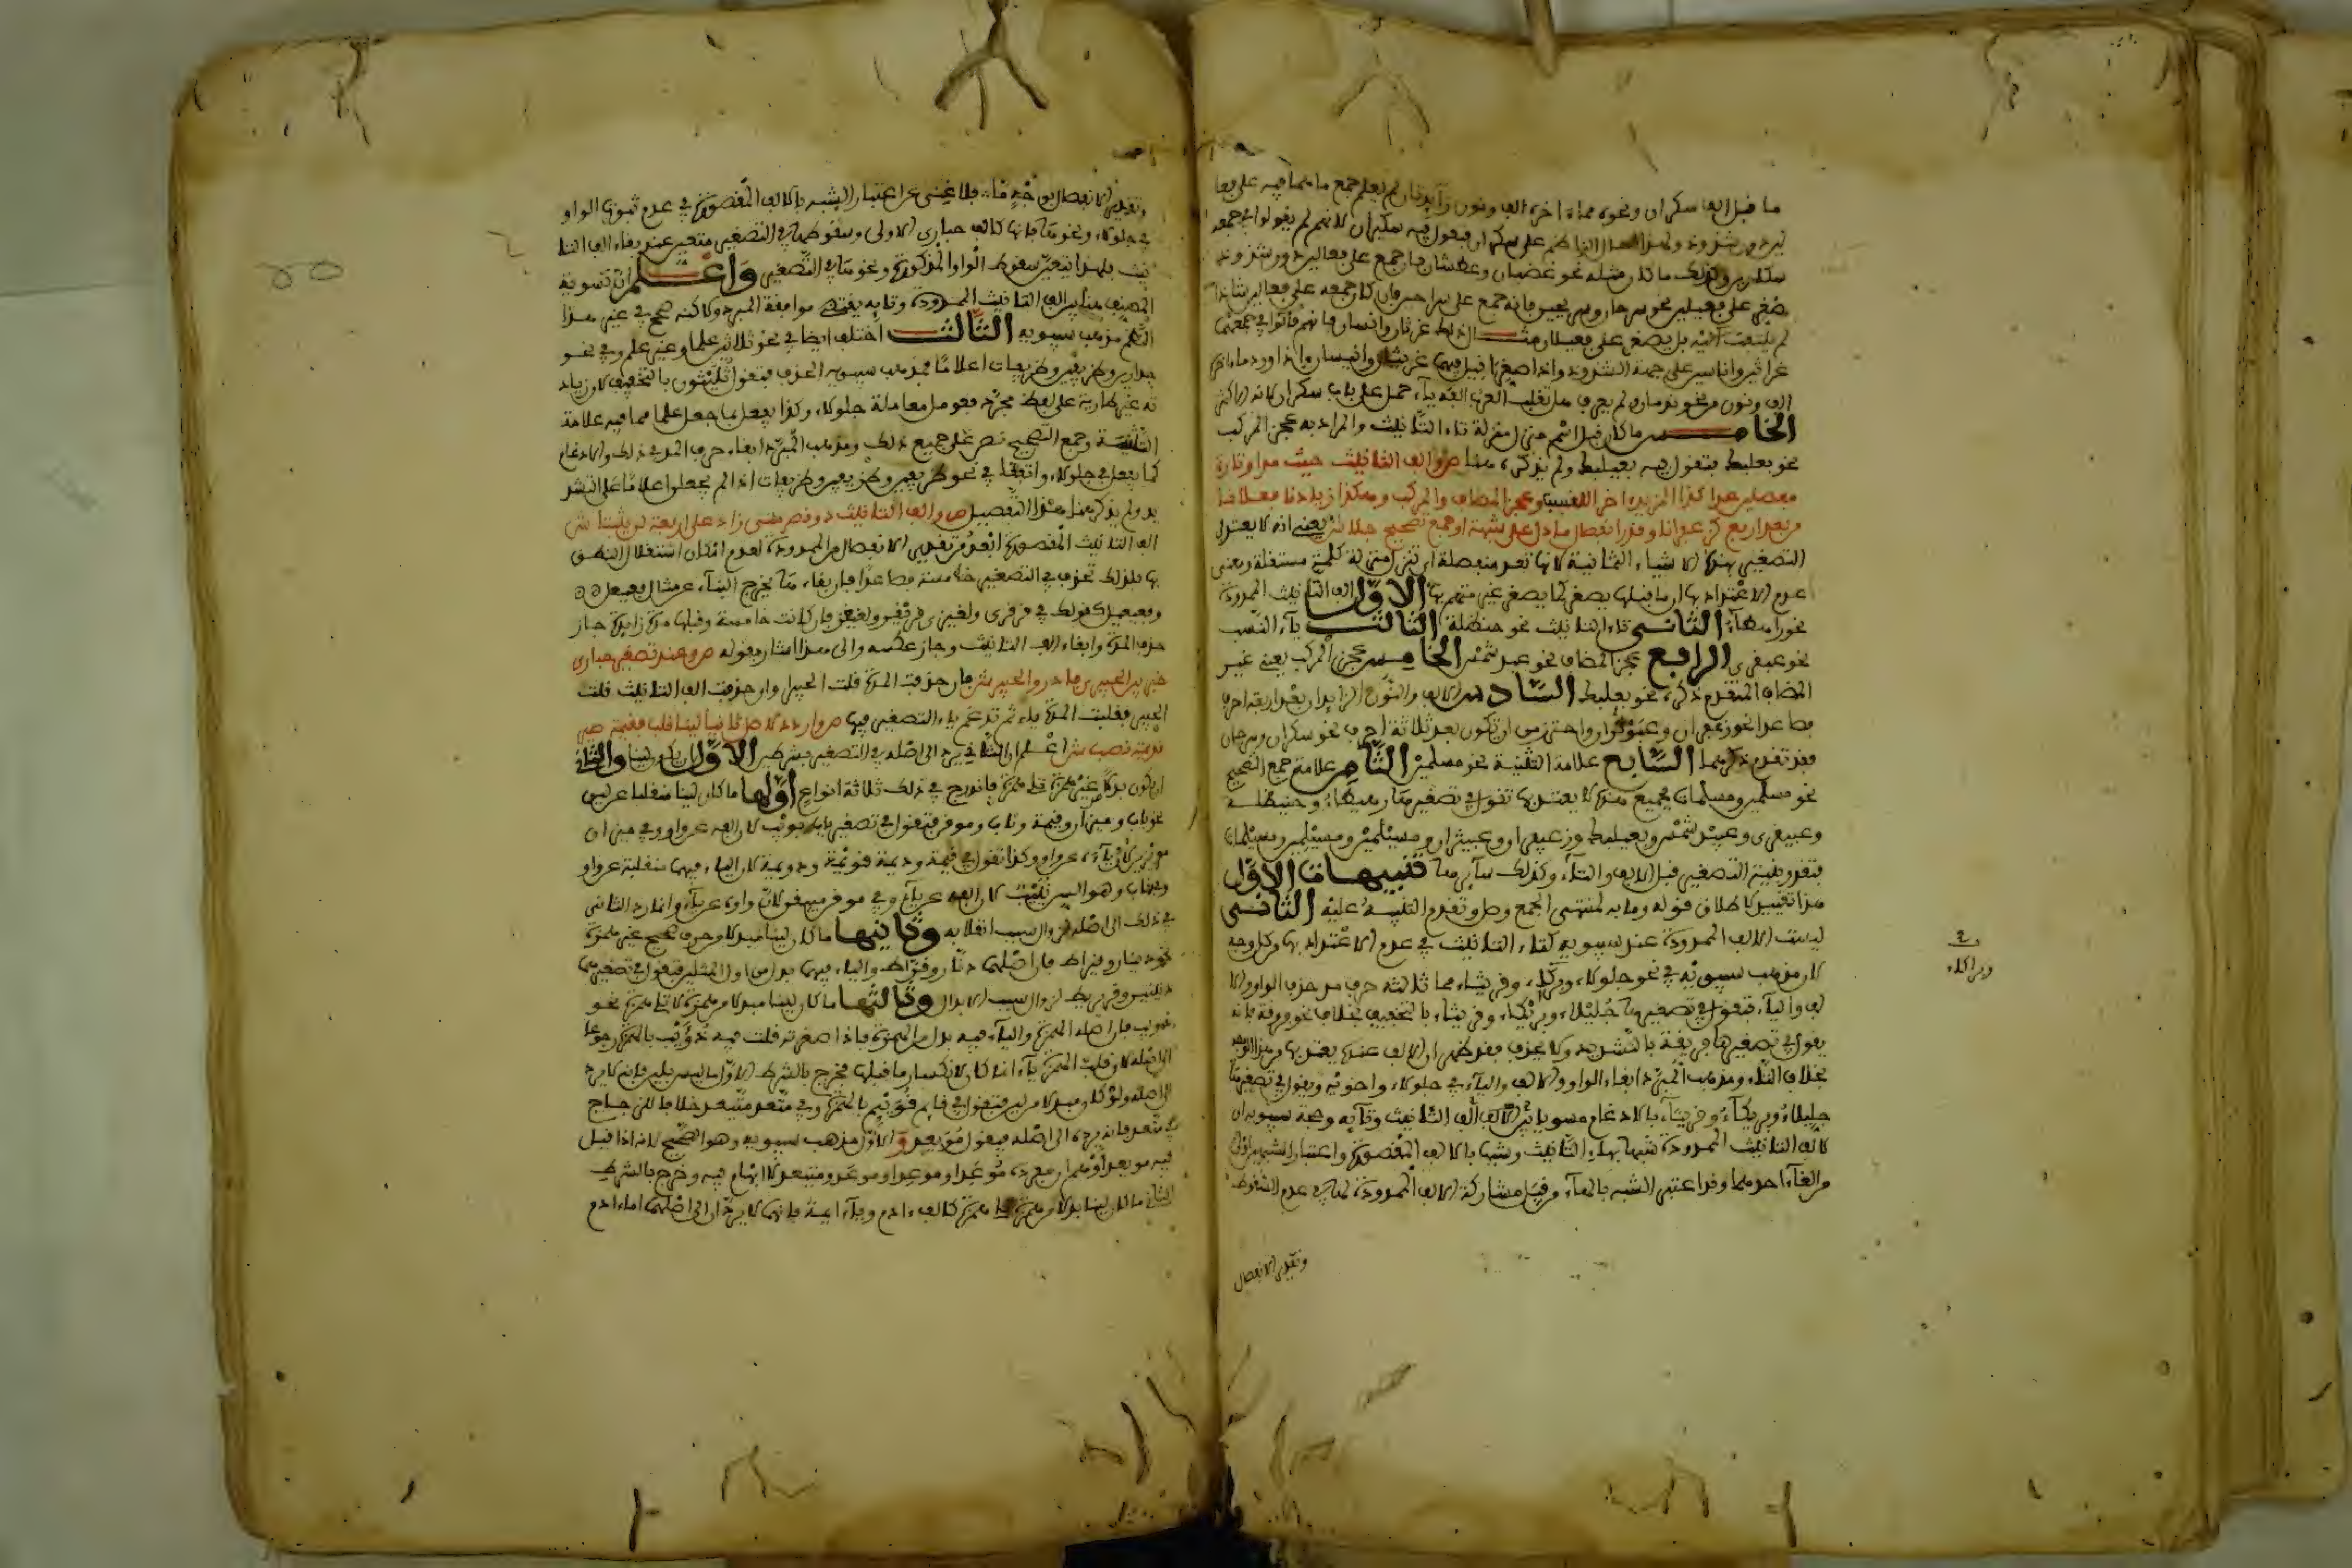 ما قبل الف سكران ونحوه مما ءاخره الف ونون زائدتان لم يعلم جمع ما هما فيه على فعا
لين دون شذوذ
سكارين وكذلك ما كان مثله نحو غضبان وعطشان فان جمع على فعالين دون شذوذ
صغر على فعيلين نحو سرحان وسريحين فانه جمع على سراحين فان كان جمعه على فعالين شاذا
لم يلتفت اليه بل يصغر على فعيلان مثـــال ذلك غرثان وانسان فانهم قالوا في جمعهما
غراثين واناسين على جهة الشذوذ واذا صغرا قيل فيهما غريثان وانيسان واذا ورد ما ءاخره
الف ونون مزيدتان ولم يعرف هل تقلب العرب الفه ياء حمل على باب سكران لانه الاكثر
الخامــس ما كان قبل اسم منزل منزلة تاء التانيث والمراد به عجز المركب
نحو بعلبك فتقول فيه بعيلبك ولم يذكره هنا ص والف التانيث حيث مدا وتاؤه
منفصلين عدا كذا المزيد ءاخرا للنسب وعجز المضاف والمركب وهكذا زيادتا فعلانا
من بعد اربع كزعفرانا وقدر انفصال ما دل على تثنية او جمع تصحيح جلا ش يعني انه لا يعتد في
التصغير بهذه الاشياء الثمانية لانها تعد منفصلة اي تنزل منزلة كلمة مستقلة ومعنى
عدم الاعتداد بها ان ما قبلها يصغر كما يصغر غير متمم بها الاول الف التانيث الممدودة
نحو حمراء الثاني تاء التانيث نحو حنظلة الثالث ياء النسب
نحو عبقري الرابع عجز المضاف نحو عبد شمس الخامس عجز المركب يعني غير
المضاف المتقدم ذكره نحو بعلبك السادس الالف والنون الزائدان بعد اربعة احرف
فصاعدا نحو زعفران وعبوثران واحترز من ان تكون بعد ثلاثة احرف نحو سكران وسرحان
فقد تقدم ذكرهما السابع علامة التثنية نحو مسلمين الثامن علامة جمع التصحيح
نحو مسلمين ومسلمات فجميع هذه لا يعتد بها تقول في تصغيرها حميراء وحنيظلــة
وعبيقري وعبيد شمس وبعيلبك وزعيفران وعبيثران ومسيلمين ومسيلمين ومسيلمات
فتقر بنية التصغير قبل الالف والتاء وكذلك سائرها تنبيهات الاول
هذا تقييد لاطلاق قوله وما به لمنتهى الجمع وصل وتقدم التنبيه عليه الثاني
ليست الالف الممدودة عند سيبويه كتاء التانيث في عدم الاعتداد بها من كل وجه
لان مذهب سيبويه في نحو جلولاء وبراكاء وقريثاء مما ثالثه حرف مد حذف الواو والا
لف والياء فتقول في تصغيرها جليلاء وبريكاء وقريثاء بالتخفيف بخلاف نحو فروقة فانه
يقول في تصغيرها فريقة بالتشديد ولا يحذف فقد ظهر ان الالف عنده يعتد بها من هذا الوجه
بخلاف التاء ومذهب المبرد ابقاء الواو والالف والياء في جلولاء واخوته ويقول في تصغيرها
جليلاء وبريكاء وقريثاء بالادغام مسويا بين الف التانيث وتائه وحجة سيبويه ان
لالف التانيث الممدودة شبها بهاء التانيث وشبها بالالف المقصورة واعتبار الشبهين اولى
من الغاء احدهما وقد اعتبر الشبه بالهاء من قبل مشاركة الالف الممدودة لها في عدم السقوط
وتقدير الانفصال
وبراكاء
وتقدير الانفصال بوجه ما فلا غنى عن اعتبار الشبه بالالف المقصورة في عدم ثبوت الواو
في جلولاء ونحوها فانها كالف حبارى الاولى وسقوطها في التصغير متعين عند بقاء الف التا
نيث فلهذا يتعين سقوط الواو المذكورة ونحوها في التصغير واعـلـم ان تسوية
المصنف هنا بين الف التانيث الممدودة وتائه يقتضي موافقة المبرد ولاكنه صحح في غير هذا
النظم مذهب سيبويه الثالث اختلف ايضا في نحو ثلاثين علما وغير علم وفي نحو
جدارين وظريفين وظريفات اعلاما فمذهب سيبويه الحذف فتقول ثليثون بالتخفيف لان زياد
ته غير طارية على لفظ مجرد فعومل معاملة جلولاء وكذا يفعل بما جعل علما مما فيه علامة
التثنية وجمع التصحيح نص على جميع ذلك ومذهب المبرد ابقاء حرف المد في ذلك والادغام
كما يفعل في جلولاء واتفقا في نحو ظريفين وظريفين وظريفات اذا لم يجعلوا اعلاما على التشد
يد ولم يذكر هنا هذا التفصيل ص والف التانيث ذو القصر متى زاد على اربعة لن يثبتا ش
الف التانيث المقصورة ابعد من تقدير الانفصال من الممدودة لعدم امكان استقلال النطق
بها فلذلك تحذف في التصغير خامسة فصاعدا فان بقاءها يخرج البناء عن مثال فعيعل
وفعيعيل كقولك في قرقرى ولغيزى قريقر ولغيغز فان كانت خامسة وقبلها مدة زائدة جاز
حذف المدة وابقاء الف التانيث وجاز عكسه والى هذا اشار بقوله ص وعند تصغير حبارى
خير بين الحبيرى فادر والحبير ش فان حذفت المدة قلت الحبيرى وان حذفت الف التانيث قلت
الحبير فقلبت المدة ياء ثم تدغم ياء التصغير فيها ص واردد لاصل ثانيا لينا قلب فقيمة صير
قويمة تصب ش اعلم ان الثاني يرد الى اصله في التصغير بشرطين الاول ان يكون لينا والثاني
ان يكون بدلا غير همزة تلي همزة فاندرج في ذلك ثلاثة انواع اولها ما كان لينا منقلبا عن لين
نحو باب وميزان وقيمة وناب وموقن فتقول في تصغير باب بويب لان الفه عن واو وفي ميزان
مويزين لان ياءه عن واو وكذا تقول في قيمة وديمة قويمة ودويمة لان الياء فيهما منقلبة عن واو
وفي ناب وهو السن نييب لان الفه عن ياء وفي موقن مييقن لان واوه عن ياء وانما رد الثاني
في ذلك الى اصله لزوال سبب انقلابه وثانيها ما كان لينا مبدلا من حرف صحيح غير همزة
نحو دينار وقيراط فان اصلهما دنار وقراط والياء فيهما بدل من اول المثلين فتقول في تصغيرهما
دنينير وقريريط لزوال سبب الابدال وثالثها ما كان لينا مبدلا من همزة لا تلي همزة نحو
ذيب فان اصله الهمزة والياء فيه بدل من الهمزة فاذا صغرته قلت فيه ذؤيب بالهمزة رجوعا
الى اصله
الى اصله ولو كان مبدلا من لين فتقول في قائم قويئم بالهمزة وفي متعد متيعد خلافا للزجاج
في متعد فانه يرده الى اصله فيقول مويعد والاول مذهب سيبويه وهو الصحيح لانه اذا قيل
فيه مويعد اوهم ان مكبره موعد او موعد او موعد ومتيعد لا ابهام فيه وخرج بالشرط
الثاني ما كان لينا بدلا من همزة تلي همزة كالف ءادم وياء ايمة فانهما لا يردان الى اصلهما اما ءادم